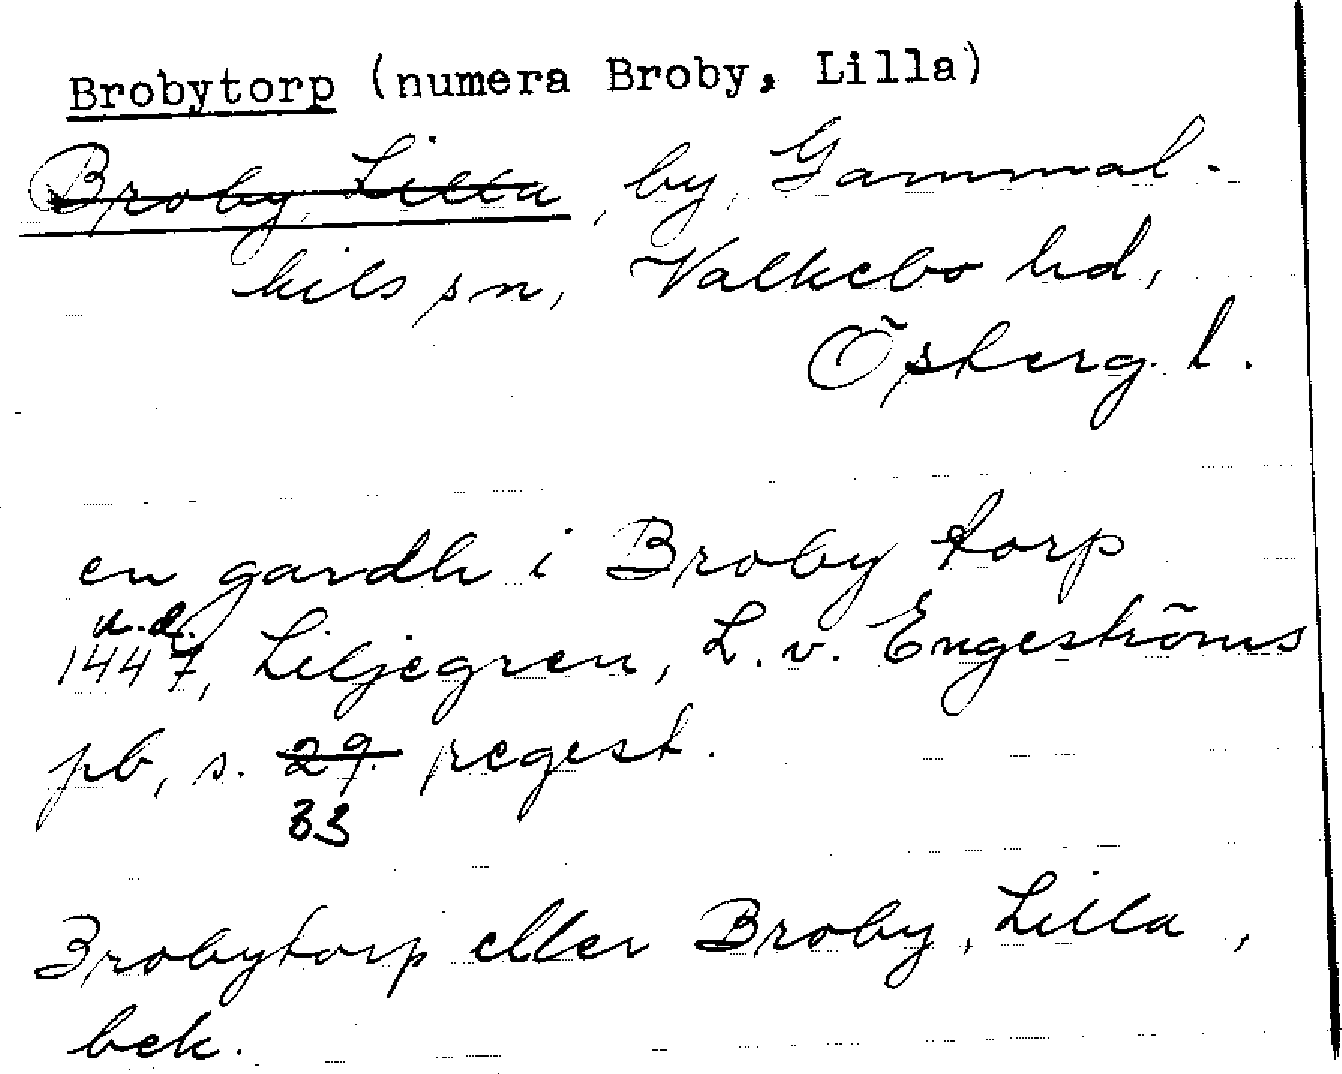 Brobytorp (numera Broby, Lilla)
Broby, Lilla, by, Gammal-
kils sn, Valkebo hd,
Österg. l.
en gardh i Broby torp
u.d.
1447, Liljegren, L. v. Engeströms
pb, s. 29. regest.
33
Brobytorp eller Broby, Lilla,
bek.